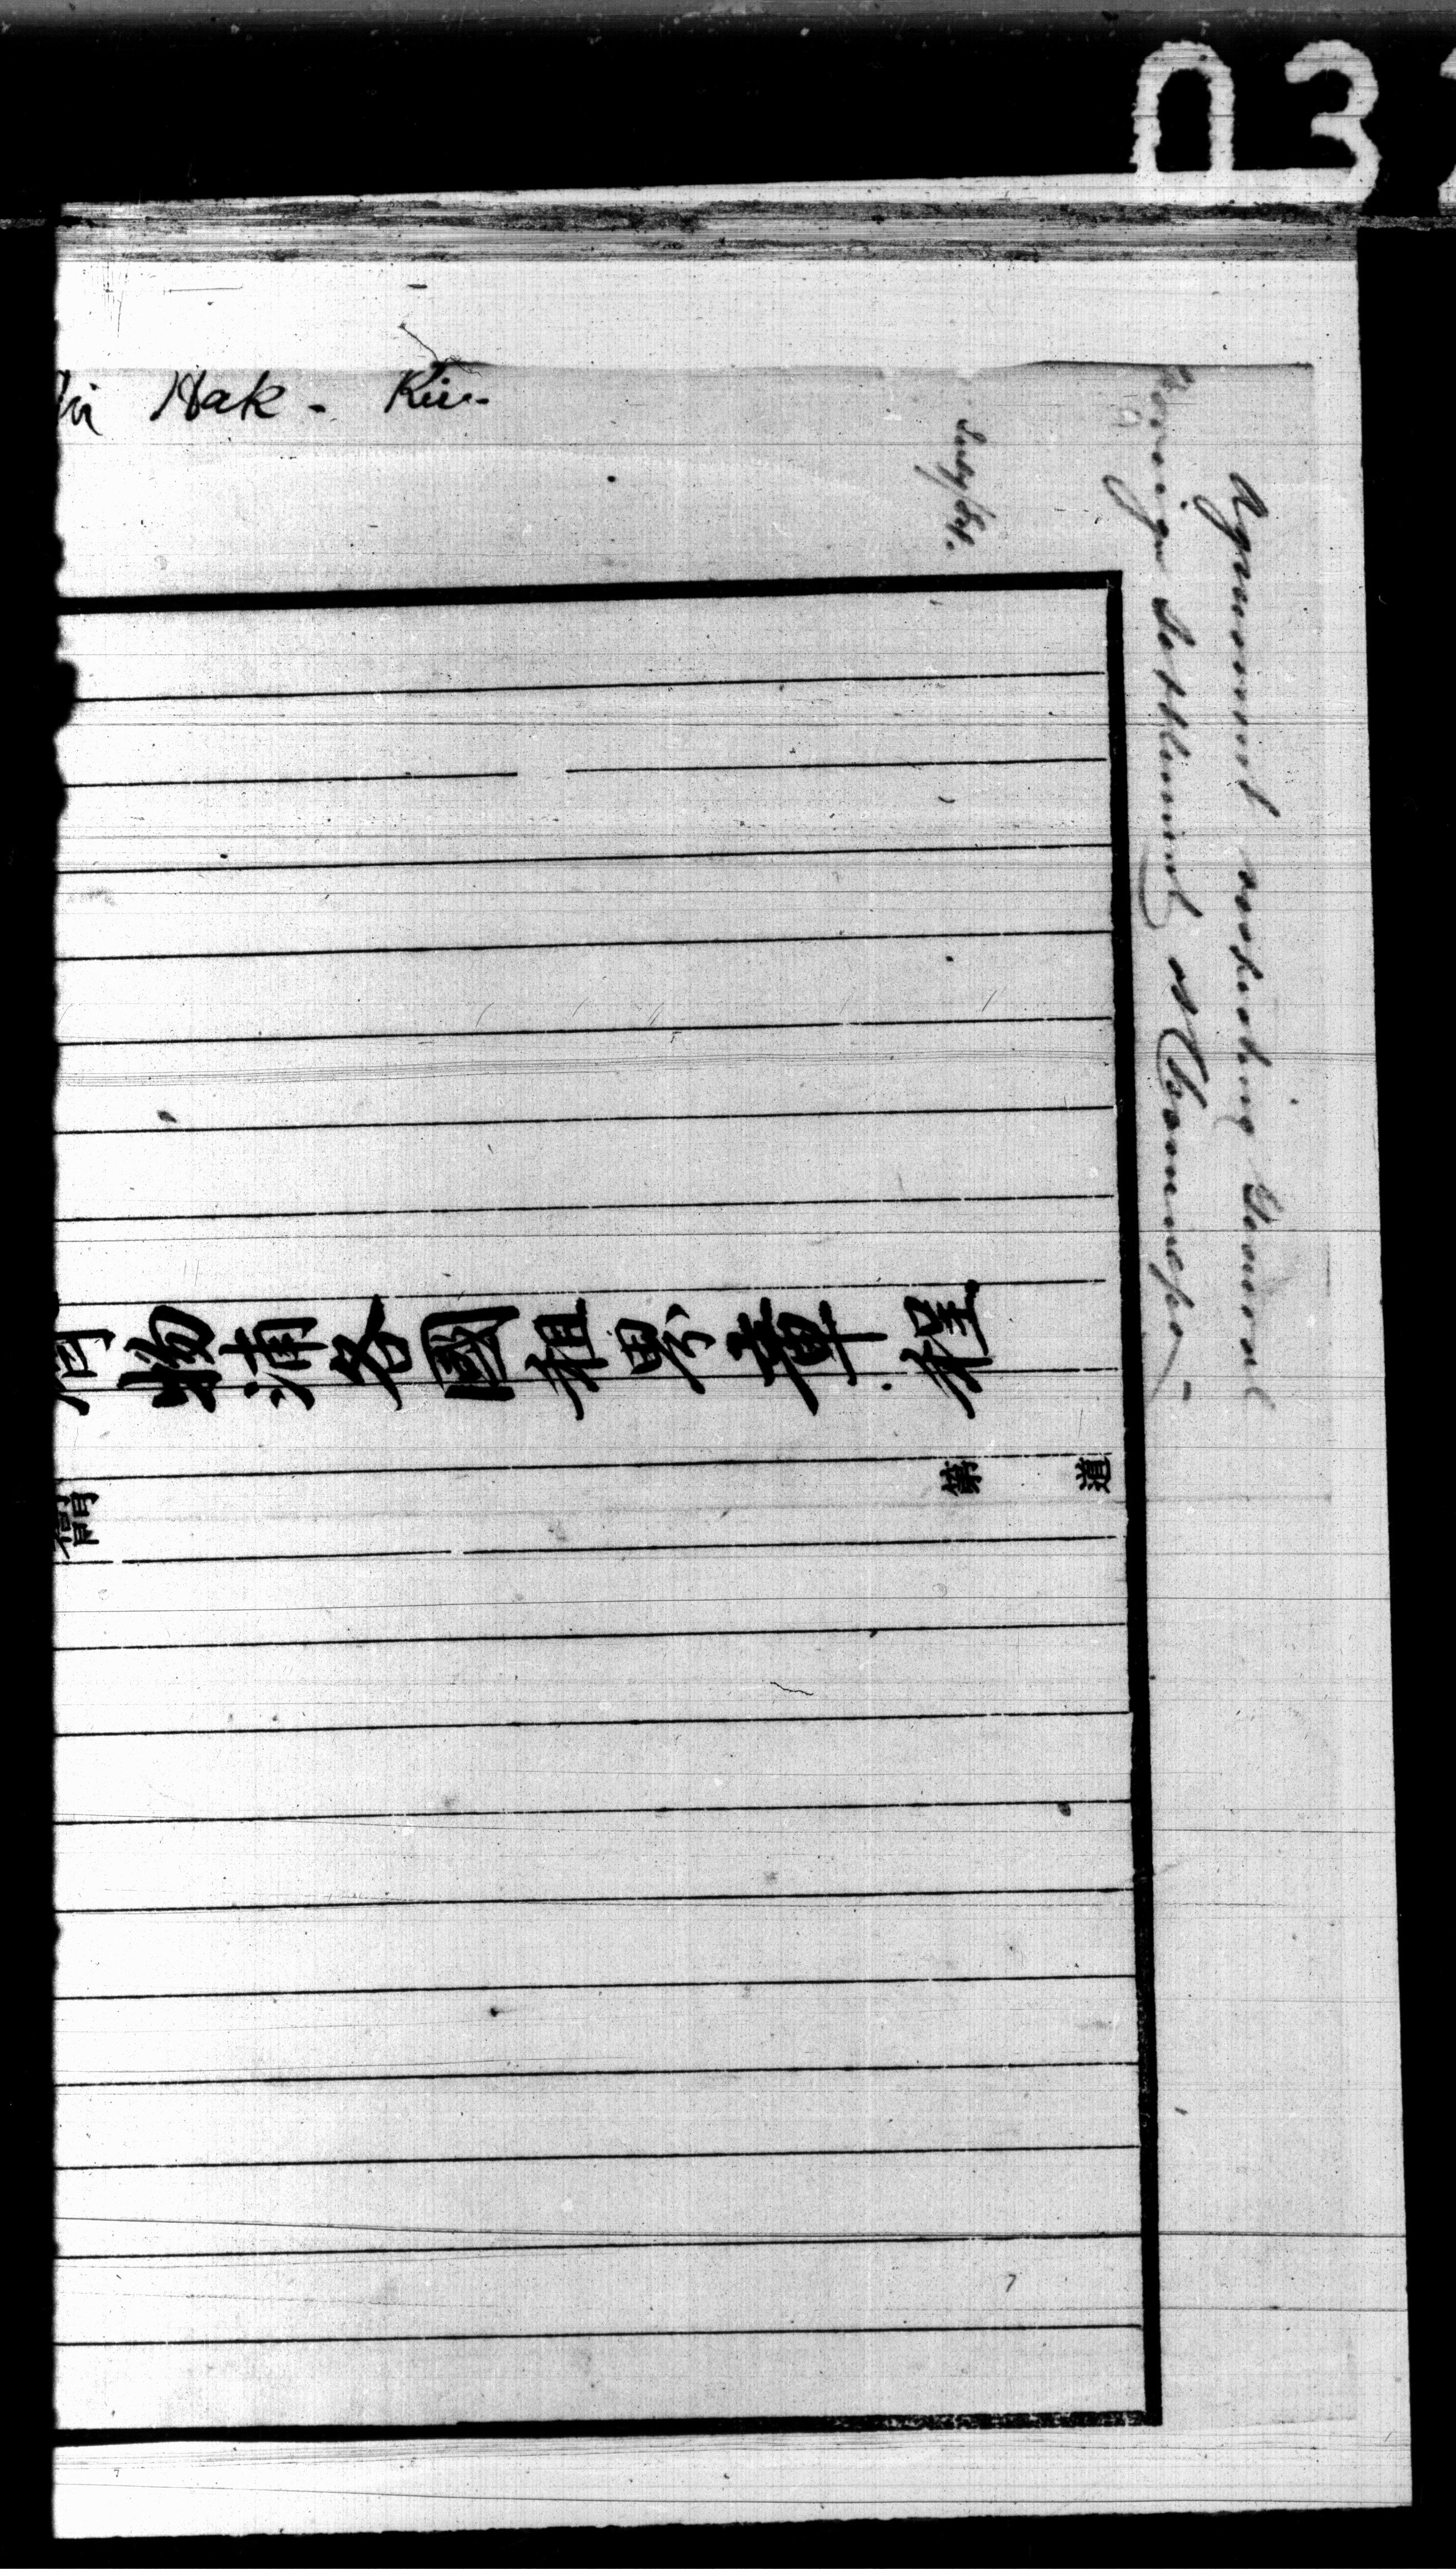 Hak - Kiu
Agreement respecting General
Foreign Settlement at Chemulpo
物浦各國租界章程
道
第